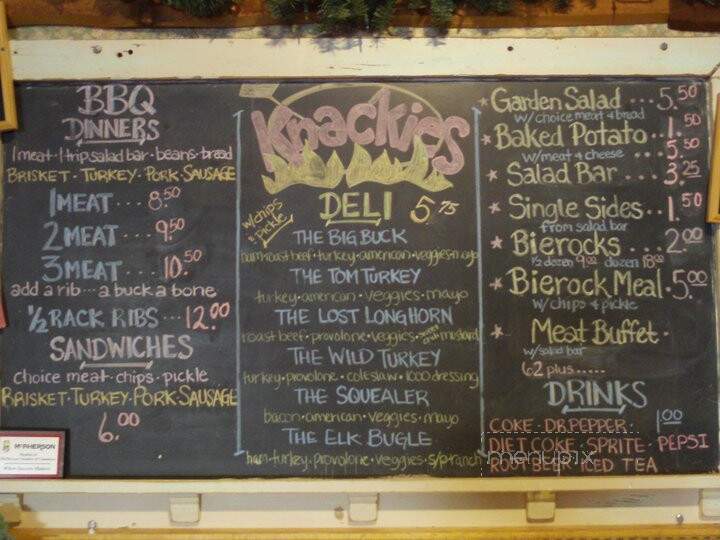 BBQ
DINNERS
1 meat · 1 trip salad bar · beans · bread
BRISKET · TURKEY · PORK · SAUSAGE
1 MEAT .... 8.50
2 MEAT .... 9.50
3 MEAT .... 10.50
add a rib ... a buck a bone
½ RACK RIBS ... 12.00
SANDWICHES
choice meat · chips · pickle
BRISKET · TURKEY · PORK · SAUSAGE
6.00
McPHERSON
Knackies
DELI 5.75
w/chips & pickle
THE BIG BUCK
ham · roast beef · turkey · american · veggies · mayo
THE TOM TURKEY
turkey · american · veggies · mayo
THE LOST LONGHORN
roast beef · provolone · veggies · mustard
THE WILD TURKEY
turkey · provolone · coleslaw · 1000 dressing
THE SQUEALER
bacon · american · veggies · mayo
THE ELK BUGLE
ham · turkey · provolone · veggies · s/p ranch
Garden Salad ... 5.50
w/ choice meat & bread
Baked Potato ... 1.50
w/meat & cheese 5.50
Salad Bar ... 3.25
Single Sides .. 1.50
from salad bar
Bierocks ... 2.00
½ dozen 9.00 dozen 18.00
Bierock Meal . 5.00
w/ chips & pickle
Meat Buffet .
w/salad bar
62 plus .....
DRINKS
1.00
COKE · DR. PEPPER
DIET COKE · SPRITE · PEPSI
ROOT BEER ICED TEA
menupix